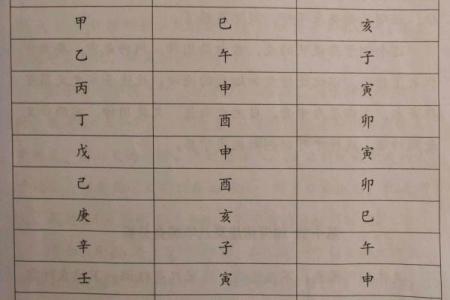 甲 巳 亥
乙 午 子
丙 申 寅
丁 酉 卯
戊 申 寅
己 酉 卯
庚 亥 巳
辛 子 午
壬 寅 申